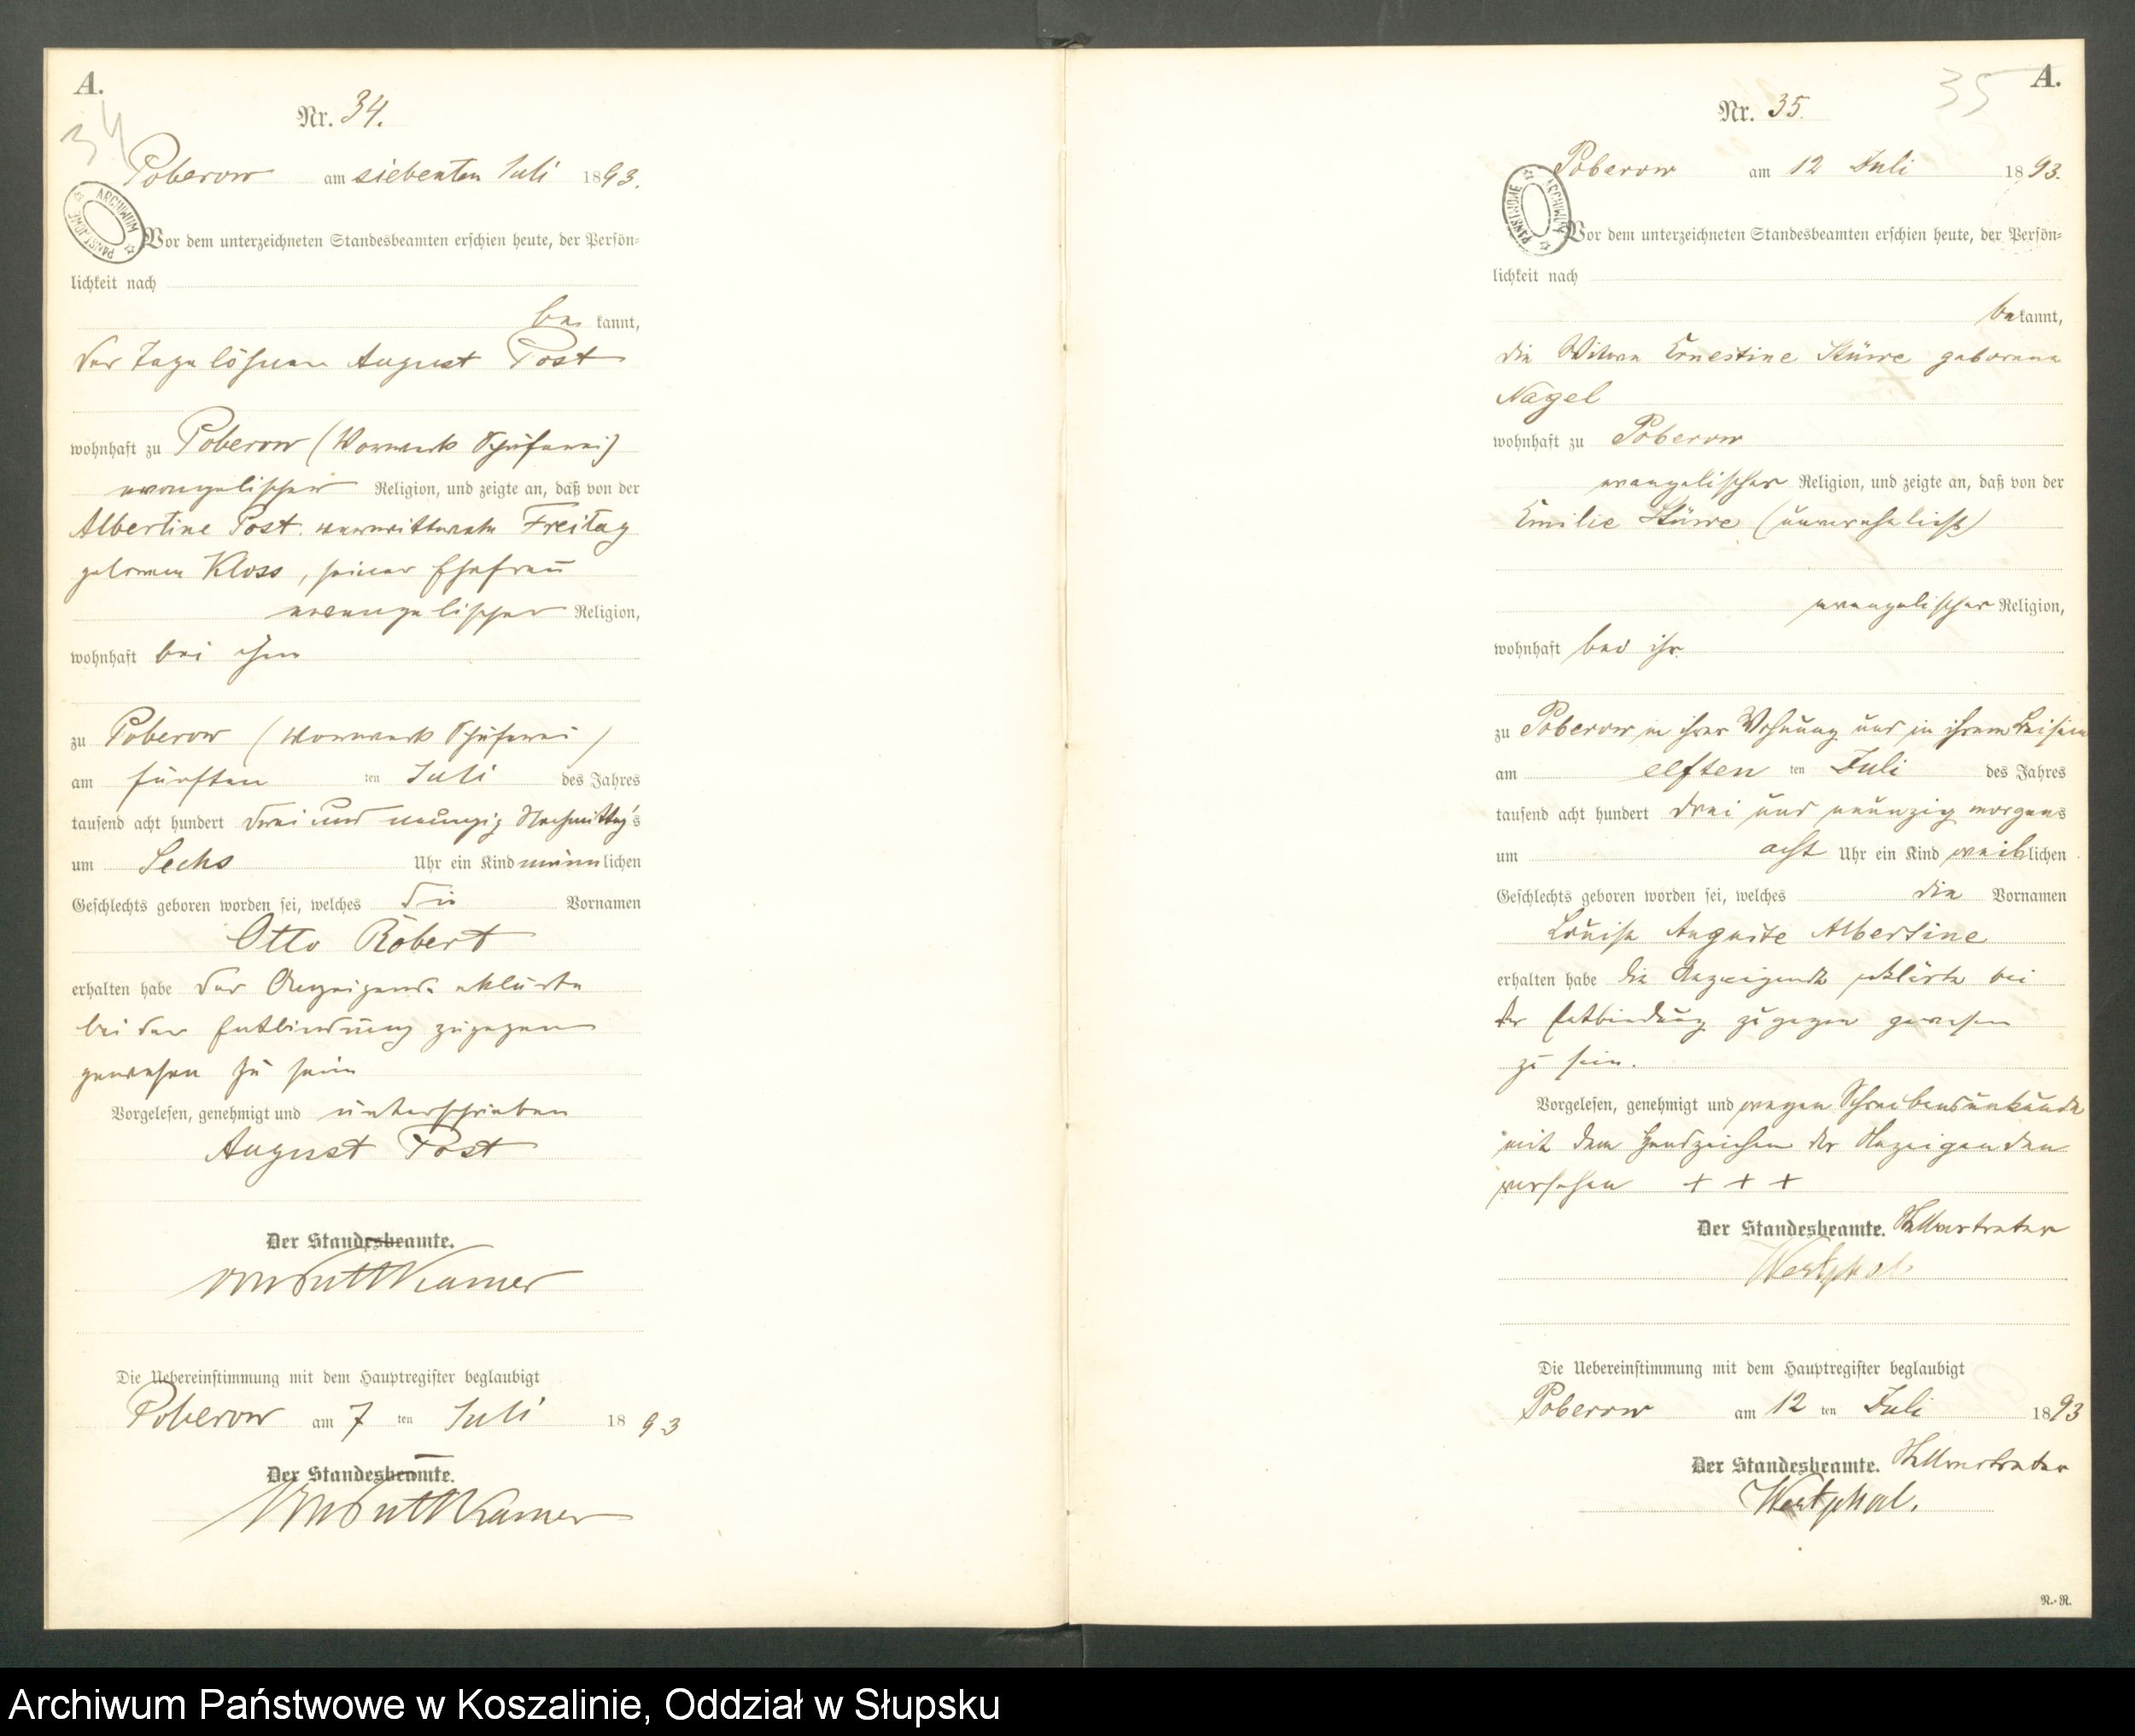 A.
Nr. 34.
34
Poberow am siebenten Juli 1893.
ARCHIWUM PAŃSTWOWE
Vor dem unterzeichneten Standesbeamten erschien heute, der Persön-
lichkeit nach
be kannt,
der Tagelöhner August Post
wohnhaft zu Poberow (Vorwerk Schäferei)
evangelischer Religion, und zeigte an, daß von der
Albertine Post verwittwete Freitag
geborenen Kloss, seiner Ehefrau
evangelischer Religion,
wohnhaft bei ihm
zu Poberow (Vorwerk Schäferei)
am fünften ten Juli des Jahres
tausend acht hundert drei und neunzig Nachmittags
um Sechs Uhr ein Kind männlichen
Geschlechts geboren worden sei, welches die Vornamen
Otto Robert
erhalten habe der Anzeigende erklärte
bei der Entbindung zugegen
gewesen zu sein
Vorgelesen, genehmigt und unterschrieben
August Post
Der Standesbeamte.
von Puttkamer
Die Uebereinstimmung mit dem Hauptregister beglaubigt
Poberow am 7 ten Juli 1893
Der Standesbeamte.
von Puttkamer
A.
35
Nr. 35.
Poberow am 12 Juli 1893.
ARCHIWUM PAŃSTWOWE
Vor dem unterzeichneten Standesbeamten erschien heute, der Persön-
lichkeit nach
bekannt,
die Witwe Ernestine Stüwe geborene
Nagel
wohnhaft zu Poberow
evangelischer Religion, und zeigte an, daß von der
Emilie Stüwe (unverehelicht)
evangelischer Religion,
wohnhaft bei ihr
zu Poberow in ihrer Wohnung und in ihrem Beisein
am elften ten Juli des Jahres
tausend acht hundert drei und neunzig morgens
um acht Uhr ein Kind weiblichen
Geschlechts geboren worden sei, welches die Vornamen
Louise Auguste Albertine
erhalten habe die Anzeigende erklärte bei
der Entbindung zugegen gewesen
zu sein.
Vorgelesen, genehmigt und wegen Schreibensunkunde
mit dem Handzeichen der Anzeigenden
versehen + + +
Der Standesbeamte. Stellvertreter
Westphal
Die Uebereinstimmung mit dem Hauptregister beglaubigt
Poberow am 12 ten Juli 1893
Der Standesbeamte. Stellvertreter
Westphal.
R.-R.
Archiwum Państwowe w Koszalinie, Oddział w Słupsku